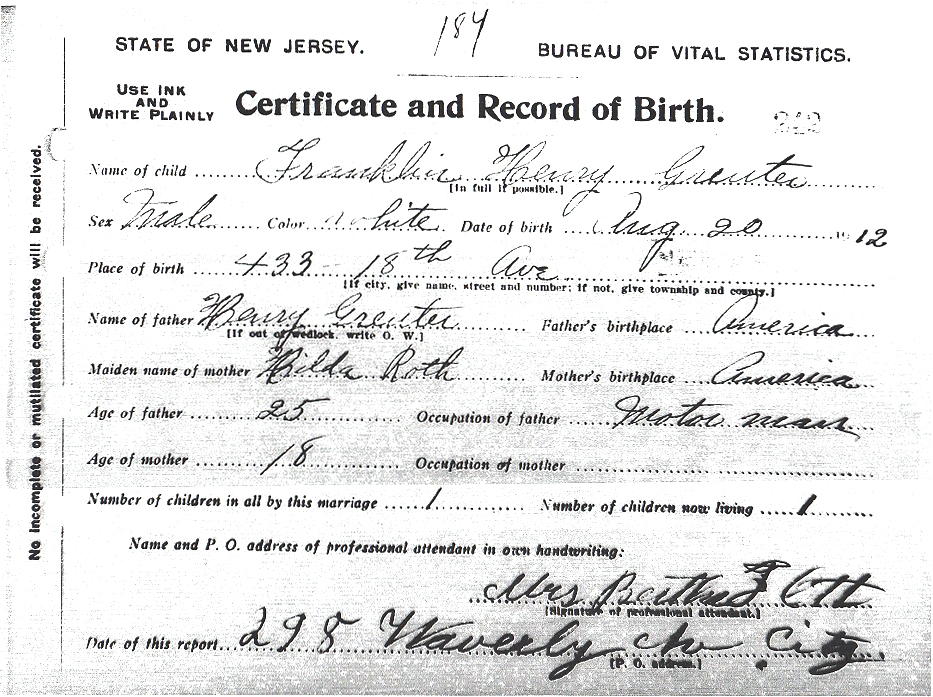 184
STATE OF NEW JERSEY. BUREAU OF VITAL STATISTICS.
USE INK AND WRITE PLAINLY
Certificate and Record of Birth.
212
No incomplete or mutilated certificate will be received.
Name of child Franklin Henry Greuter
[In full if possible.]
Sex Male Color white Date of birth Aug 20 1912
Place of birth 433 - 18th Ave
[If city, give name, street and number; if not, give township and county.]
Name of father Henry Greuter Father's birthplace America
[If out of wedlock, write O. W.]
Maiden name of mother Hilda Roth Mother's birthplace America
Age of father 25 Occupation of father Motor man
Age of mother 18 Occupation of mother
Number of children in all by this marriage 1 Number of children now living 1
Name and P. O. address of professional attendant in own handwriting:
Mrs Bertha Ott
[Signature of professional attendant.]
Date of this report 298 Waverly Av City
[P. O. address.]